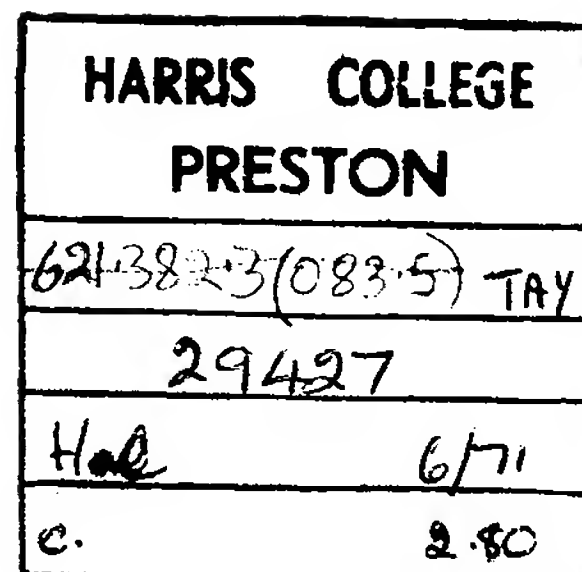 HARRIS COLLEGE
PRESTON
621.382.3(083.5) TAY
29427
6/71
c. 2.80